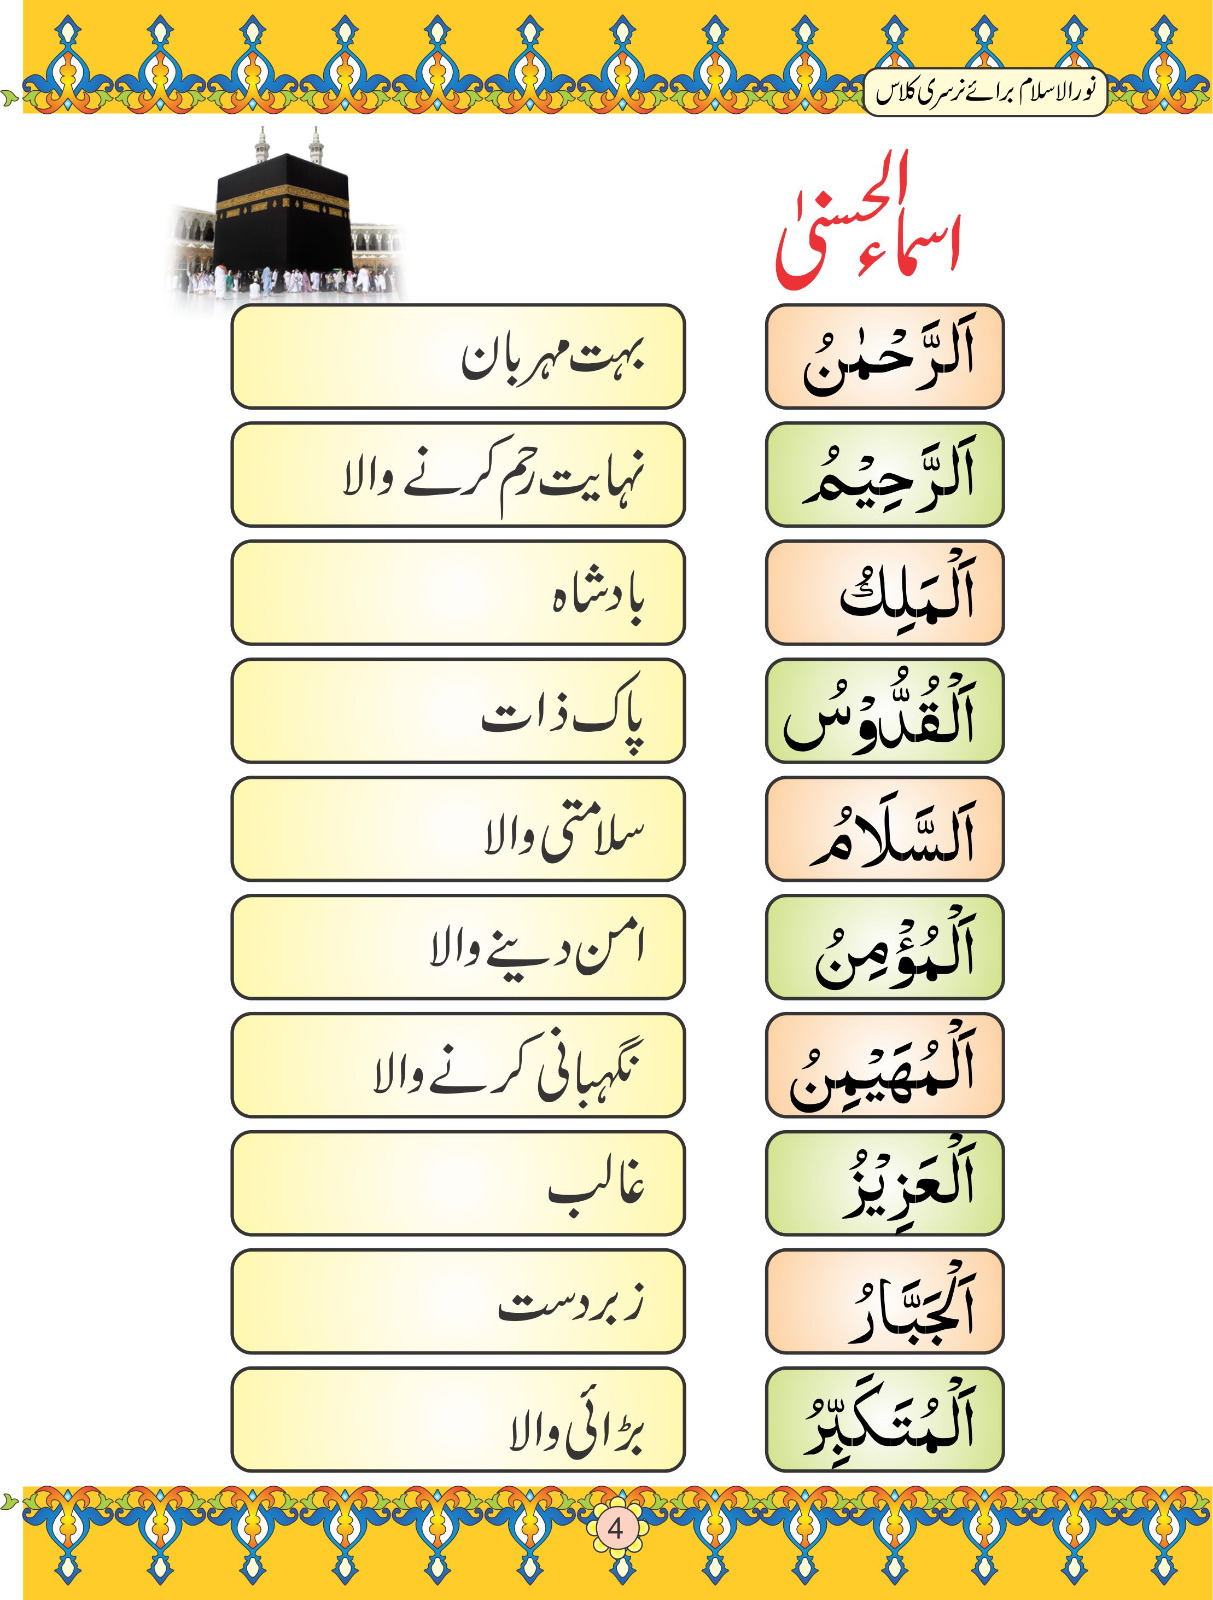 نور الاسلام برائے نرسری کلاس
اسماء الحسنیٰ
اَلرَّحْمٰنُ بہت مہربان
اَلرَّحِيْمُ نہایت رحم کرنے والا
اَلْمَلِكُ بادشاہ
اَلْقُدُّوْسُ پاک ذات
اَلسَّلَامُ سلامتی والا
اَلْمُؤْمِنُ امن دینے والا
اَلْمُهَيْمِنُ نگہبانی کرنے والا
اَلْعَزِيْزُ غالب
اَلْجَبَّارُ زبردست
اَلْمُتَكَبِّرُ بڑائی والا
4